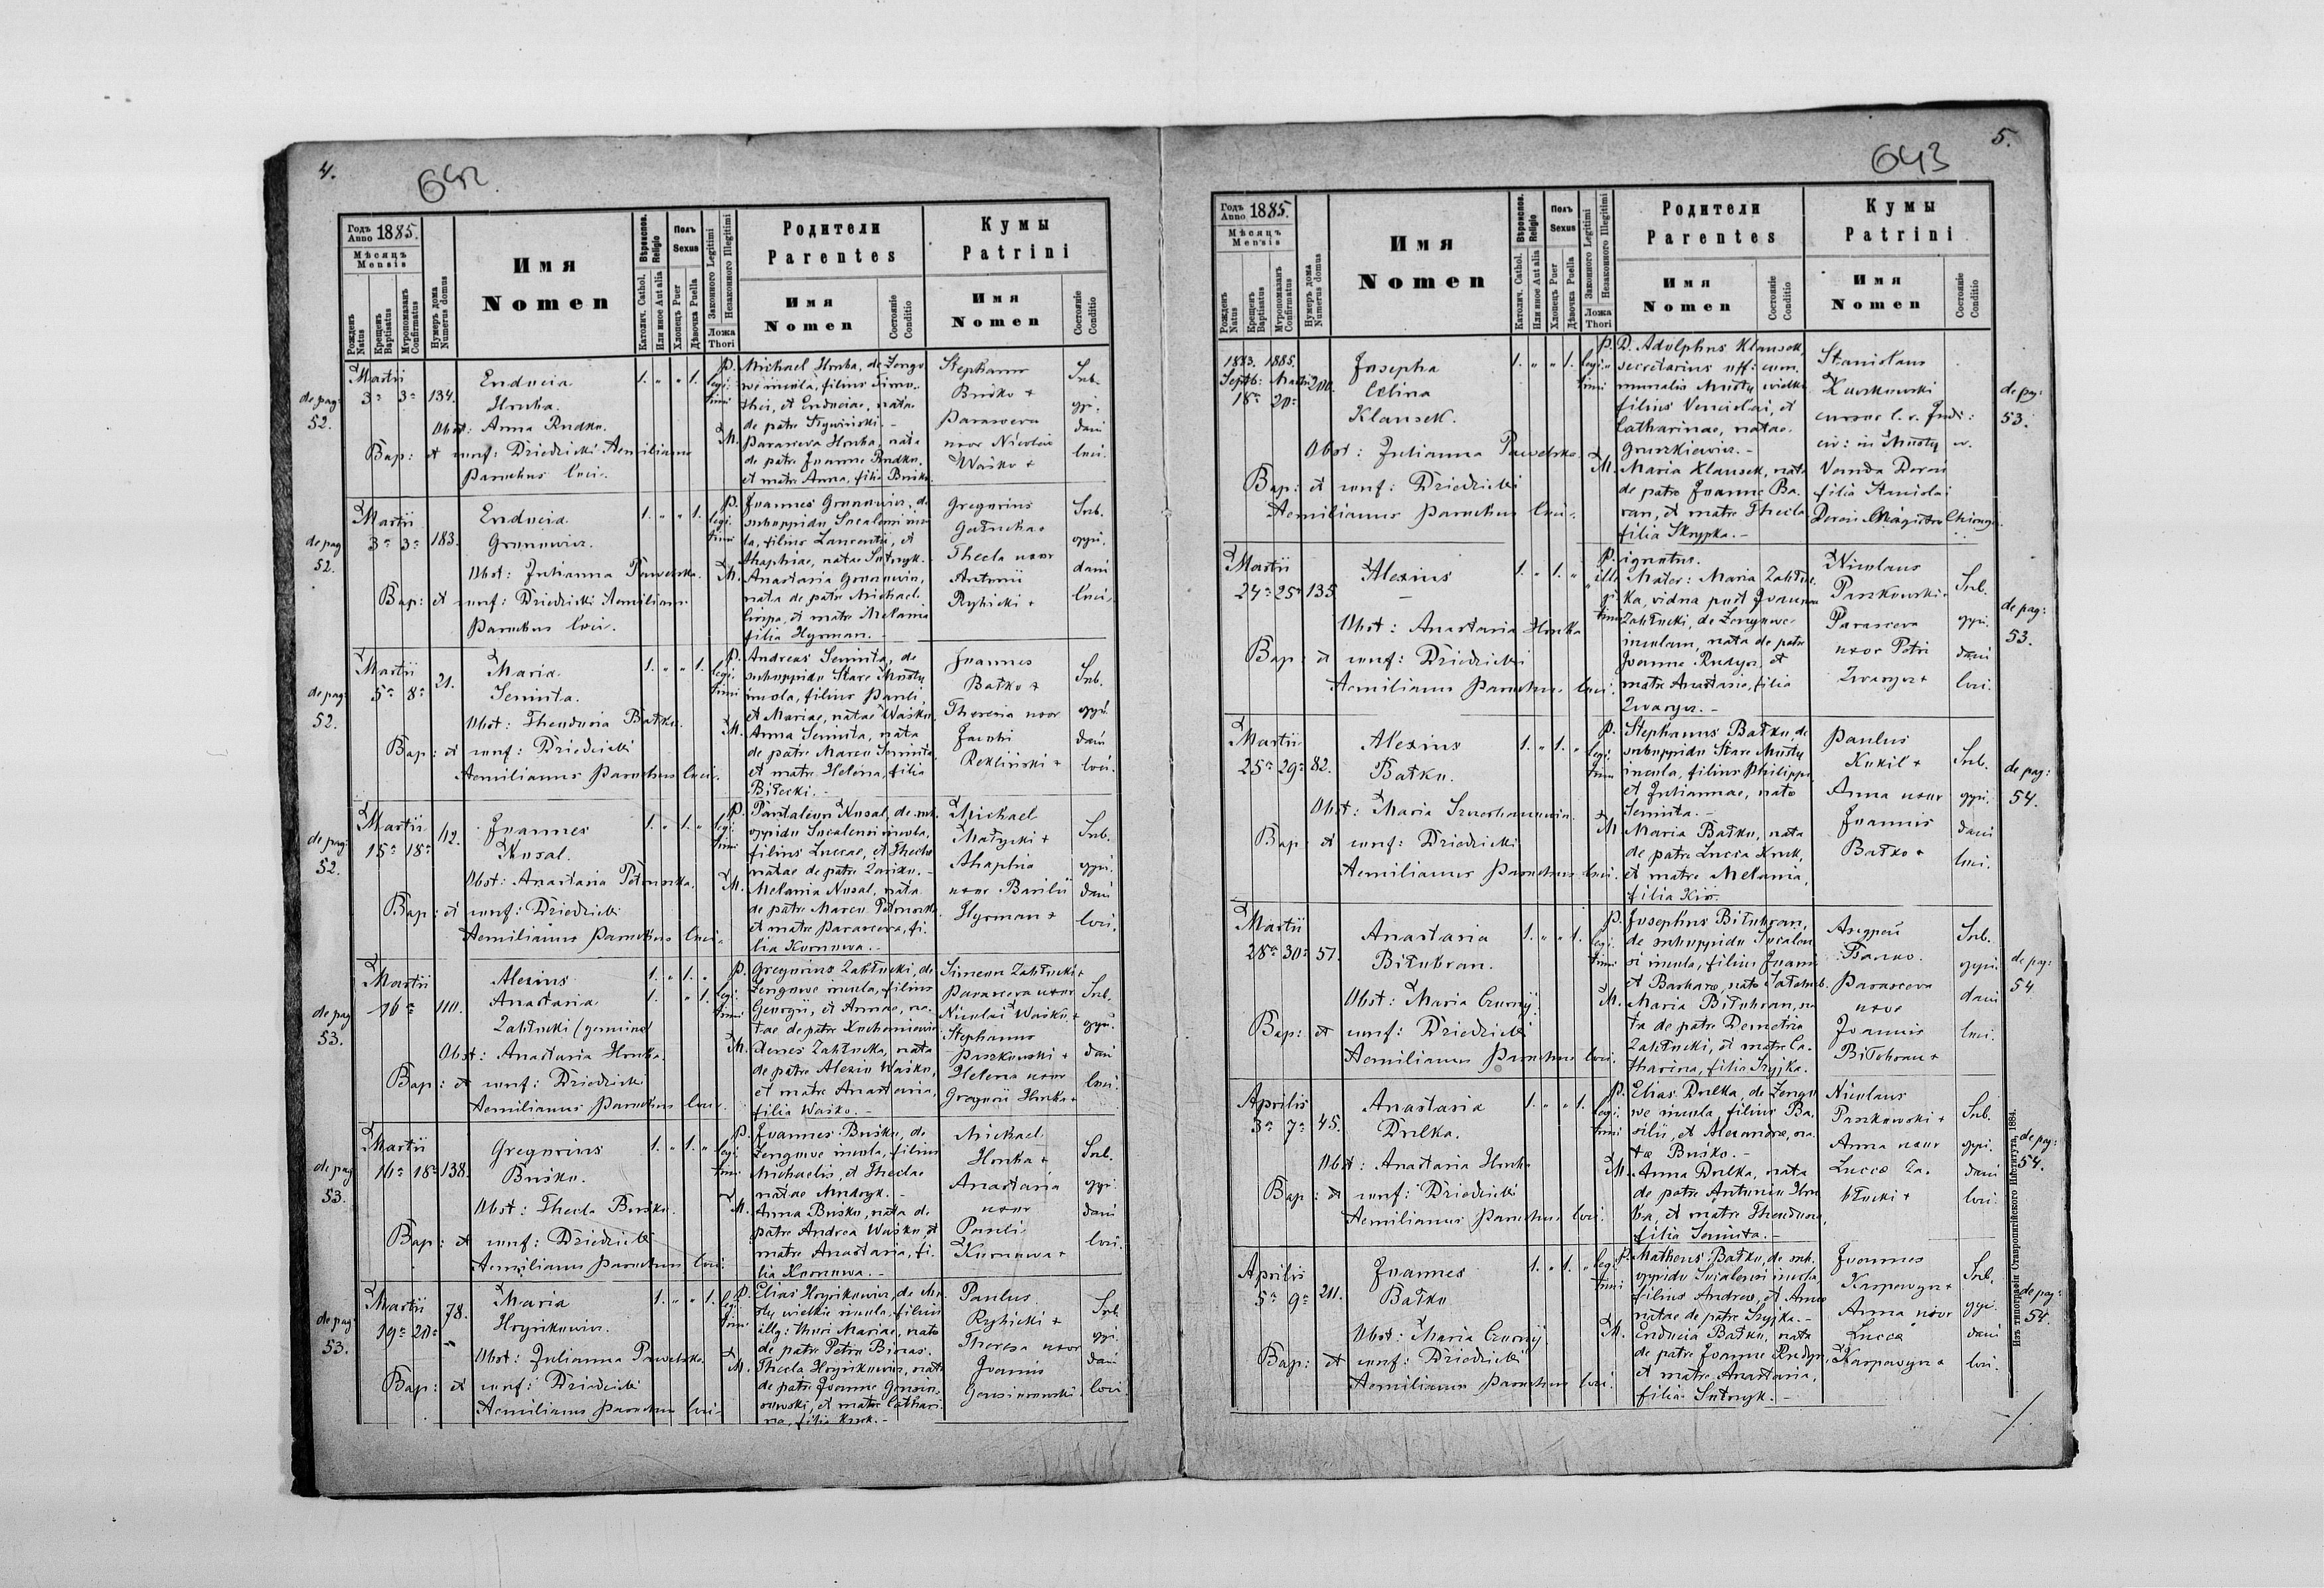 4.
642
Годъ Anno 1885.
Мѣсяцъ Mensis
Рожденъ Natus
Крещенъ Baptisatus
Мѵропомазанъ Confirmatus
Нумеръ дома Numerus domus
Имя Nomen
Вѣроиспов. Religio
Католич. Cathol.
Или иное Aut alia
Полъ Sexus
Хлопецъ Puer
Дѣвочка Puella
Законного Legitimi
Незаконного Illegitimi
Ложа Thori
Родители Parentes
Имя Nomen
Состояніе Conditio
Кумы Patrini
Имя Nomen
Состояніе Conditio
de pag: 52.
Martii
3a 3a 134.
Eudocia
Hruba.
Obst: Anna Rudko.
Bap: et conf: Dziedzicki Aemilianus
Parochus loci.
1. " " 1.
legitimi
P. Michael Hruba, de Zengo
we incola, filius Timo-
thei, et Eudociae, natae
de patre
M. Parasceva Hruba, nata
de patre Joanne Rudko,
et matre Anna, filia Buśko.
Stephanus
Buśko +
Parasceva
uxor Nicolai
Waśko +
Sub.
opi.
dani
loci.
de pag 52.
Martii
3a 3a 183.
Eudocia
Gronowicz.
Obst: Julianna Pawelska.
Bap: et conf: Dziedzicki Aemilianus
Parochus loci.
1. " " 1.
legitimi
P. Joannes Gronowicz, de
suboppido Socalensi inco-
la, filius Laurentii, et
Ahaphiae, natae Sutnyk.
M. Anastasia Gronowicz,
nata de patre Michael
et matre Melania
filia Hyrman.
Gregorius
Thecla uxor
Antonii
Rybicki +
Sub.
oppi.
dani
loci.
de pag: 52.
Martii
5a 8a 21.
Maria
Semita.
Obst: Theodosia Bałko.
Bap: et conf: Dziedzicki
Aemilianus Parochus loci.
1. " " 1.
legitimi
P. Andreas Semita, de
suboppido Stare Mosty
incola, filius Pauli,
et Mariae, natae Waśko.
M. Anna Semita, nata
de patre Marco Semita,
et matre Helena, filia
Biłecki. -
Joannes
Bałko +
Theresia uxor
Jacobi
Rekliński +
Sub.
oppi.
dani
loci.
de pag: 52.
Martii
15a 18a 112.
Joannes
Nosal.
Obst: Anastasia
Bap: et conf: Dziedzicki
Aemilianus Parochus loci.
1. " 1. "
legitimi
P. Pantaleon Nosal, de sub-
oppido Socalensi incola,
filius Luccae, et Theclae
natae de patre
M. Melania Nosal, nata
de patre Marco
et matre Parasceva, fi-
lia Kornowa. -
Michael
Małycki +
Ahaphia
uxor Basilii
Hyrman +
Sub.
oppi.
dani
loci.
de pag 53.
Martii
16a 110.
Alexius
Anastasia
Zabłucki (gemini)
Obst: Anastasia Hruba.
Bap: et conf: Dziedzicki
Aemilianus Parochus loci.
1. " 1. "
1. " 1.
legitimi
P. Gregorius Zabłucki, de
Zengowe incola, filius
Georgii, et Annae, na-
tae de patre
M. Zabłucka, nata
de patre Alexio Waśko,
et matre Anastasia,
filia Waśko. -
Simeon Zabłucki +
Parasceva uxor
Nicolai Waśko, +
Stephanus
Paszkowski +
Helena uxor
Gregorii Hruba +
Sub.
oppi.
dani
loci.
de pag 53.
Martii
16a 18a 138.
Gregorius
Buśko.
Obst: Thecla Buśko.
Bap: et conf: Dziedzicki
Aemilianus Parochus loci.
1. " 1. "
legitimi
P. Joannes Buśko, de
Zengowe incola, filius
Michaelis, et Theclae
natae Mudryk. -
M. Anna Buśko, nata de
patre Andrea Waśko, et
matre Anastasia, fi-
lia Kornowa. -
Michael
Hruba +
Anastasia
uxor
Pauli
Kornowa +
Sub.
oppi.
dani
loci.
de pag 53.
Martii
19a 20a 78.
Maria
Hryńkowicz.
Obst: Julianna Pawelska.
Bap: et conf: Dziedzicki
Aemilianus Parochus loci.
1. " " 1.
legitimi
P. Elias Hryńkowicz, de Mo-
sty wielkie incola, filius
illg: thori Mariae, nata
de patre Petro
M. Thecla Hryńkowicz, nata
de patre Joanne Gonsio-
rowski, et matre Cathari-
na, filia Kruk. -
Paulus
Rybicki +
Theresa uxor
Joannis
Gonsiorowski.
Sub.
opi.
dani
loci.
5.
643
Годъ Anno 1885.
Мѣсяцъ Mensis
Рожденъ Natus
Крещенъ Baptisatus
Мѵропомазанъ Confirmatus
Нумеръ дома Numerus domus
Имя Nomen
Вѣроиспов. Religio
Католич. Cathol.
Или иное Aut alia
Полъ Sexus
Хлопецъ Puer
Дѣвочка Puella
Законного Legitimi
Незаконного Illegitimi
Ложа Thori
Родители Parentes
Имя Nomen
Состояніе Conditio
Кумы Patrini
Имя Nomen
Состояніе Conditio
1883. 1885.
Septb: Martii
18a 20a 200.
Josepha
Celina
Klausek.
Obst: Julianna Pawelska.
Bap: et conf: Dziedzicki
Aemilianus Parochus loci.
1. " " 1.
legitimi
P. D. Adolphus Klausek,
secretarius off: com-
munalis Mosty wielkie
filius Venceslai, et
Catharinae, natae
Gruszkiewicz. -
M. Maria Klausek, nata
de patre Joanne Ba-
ran, et matre Thecla
filia Skrypka. -
Stanislaus
Kurkowski
cursor c.r. Judi:
civ: in Mosty w.
Vanda
filia Stanislai
de pag: 53.
Martii
24a 25a 135.
Alexius
-
Obst: Anastasia Hruba
Bap: et conf: Dziedzicki
Aemilianus Parochus loci.
1. " 1. "
illegitimi
P. ignotus.
Mater: Maria Zabłuc-
ka, vidua post Joannem
Zabłucki, de Zengowe
incolam, nata de patre
Joanne Rudyj, et
matre Anastasia, filia
Zwarycz. -
Nicolaus
Paszkowski +
Parasceva
uxor Petri
Zwarycz +
Sub.
oppi.
dani
loci.
de pag: 53.
Martii
25a 29a 82.
Alexius
Bałko.
Obst: Maria
Bap: et conf: Dziedzicki
Aemilianus Parochus loci.
1. " 1. "
legitimi
P. Stephanus Bałko, de
suboppido Stare Mosty
incola, filius Philippi
et Juliannae, nata
Semita. -
M. Maria Bałko, nata
de patre Lucca Kruk,
et matre Melania,
filia
Paulus
Kukil +
Anna uxor
Joannis
Bałko +
Sub.
oppi.
dani
loci.
de pag: 54.
Martii
28a 30a 57.
Anastasia
Biłobran.
Obst: Maria Czornij.
Bap: et conf: Dziedzicki
Aemilianus Parochus loci.
1. " " 1.
legitimi
P. Josephus Biłobran,
de suboppido Socalen-
si incola, filius Joannis
et Barbarae, nata
M. Maria Biłobran, na-
ta de patre Demetrio
Zabłucki, et matre Ca-
tharina, filia Szyjka.
Андрей
Parasceva
uxor
Joannis
Biłobran +
Sub.
oppi.
dani
loci.
de pag: 54
Aprilis
3a 7a 45.
Anastasia
Dulka.
Obst: Anastasia Hruba
Bap: et conf: Dziedzicki
Aemilianus Parochus loci.
1. " " 1.
legitimi
P. Elias Dulka, de Zengo
we incola, filius Ba-
silii, et Alexandrae, na-
tae Buśko. -
M. Anna Dulka, nata
de patre Antonio Hru
ba, et matre Theodora,
filia Semita. -
Nicolaus
Paszkowski +
Anna uxor
Luccae Za-
błucki +
Sub.
oppi.
dani
loci.
de pag: 54.
Aprilis
5a 9a 211.
Joannes
Bałko
Obst: Maria Czornij.
Bap: et conf: Dziedzicki
Aemilianus Parochus loci.
1. " 1. "
legitimi
P. Matheus Bałko, de sub-
oppido Socalensi incola,
filius Andreae, et Annae
natae de patre Szyjka. -
M. Eudocia Bałko, nata
de patre Joanne Rudyj,
et matre Anastasia,
filia Sutnyk. -
Joannes
Karpowycz +
Anna uxor
Luccae
Karpowycz +
Sub.
oppi.
dani
loci.
de pag: 54.
Изъ типографіи Ставропигійского Института, 1884.